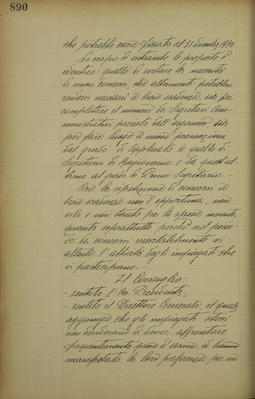 890
che potrebbe essere fissato al 31 dicembre 1930.
Lo scopo di entrambe le proposte è
identico: quello di evitare la necessità
di nuovi concorsi, che altrimenti potrebbero
rendersi necessari a breve scadenza, sia per
completare il numero dei Segretari Am=
ministrativi previsto dall'organico, sia
per dare luogo a nuove promozioni
dal grado di Applicato a quello di
Segretario di Ragioneria e da quest'ul=
timo al grado di Primo Segretario.
Ora la ripetizione di concorsi a
breve scadenza non è opportuna, non
solo e non tanto per le spese
quanto soprattutto perchè nel perio=
do in concorsi inevitabilmente si
altera l'attività degli impiegati che
vi partecipano.
Il Consiglio:
- sentito l'On. Presidente;
- sentito il Direttore Generale, il quale
aggiunge che gli impiegati stessi
non desiderano di dover affrontare
frequentemente prove d'esame, ed hanno
manifestato la loro preferenza per